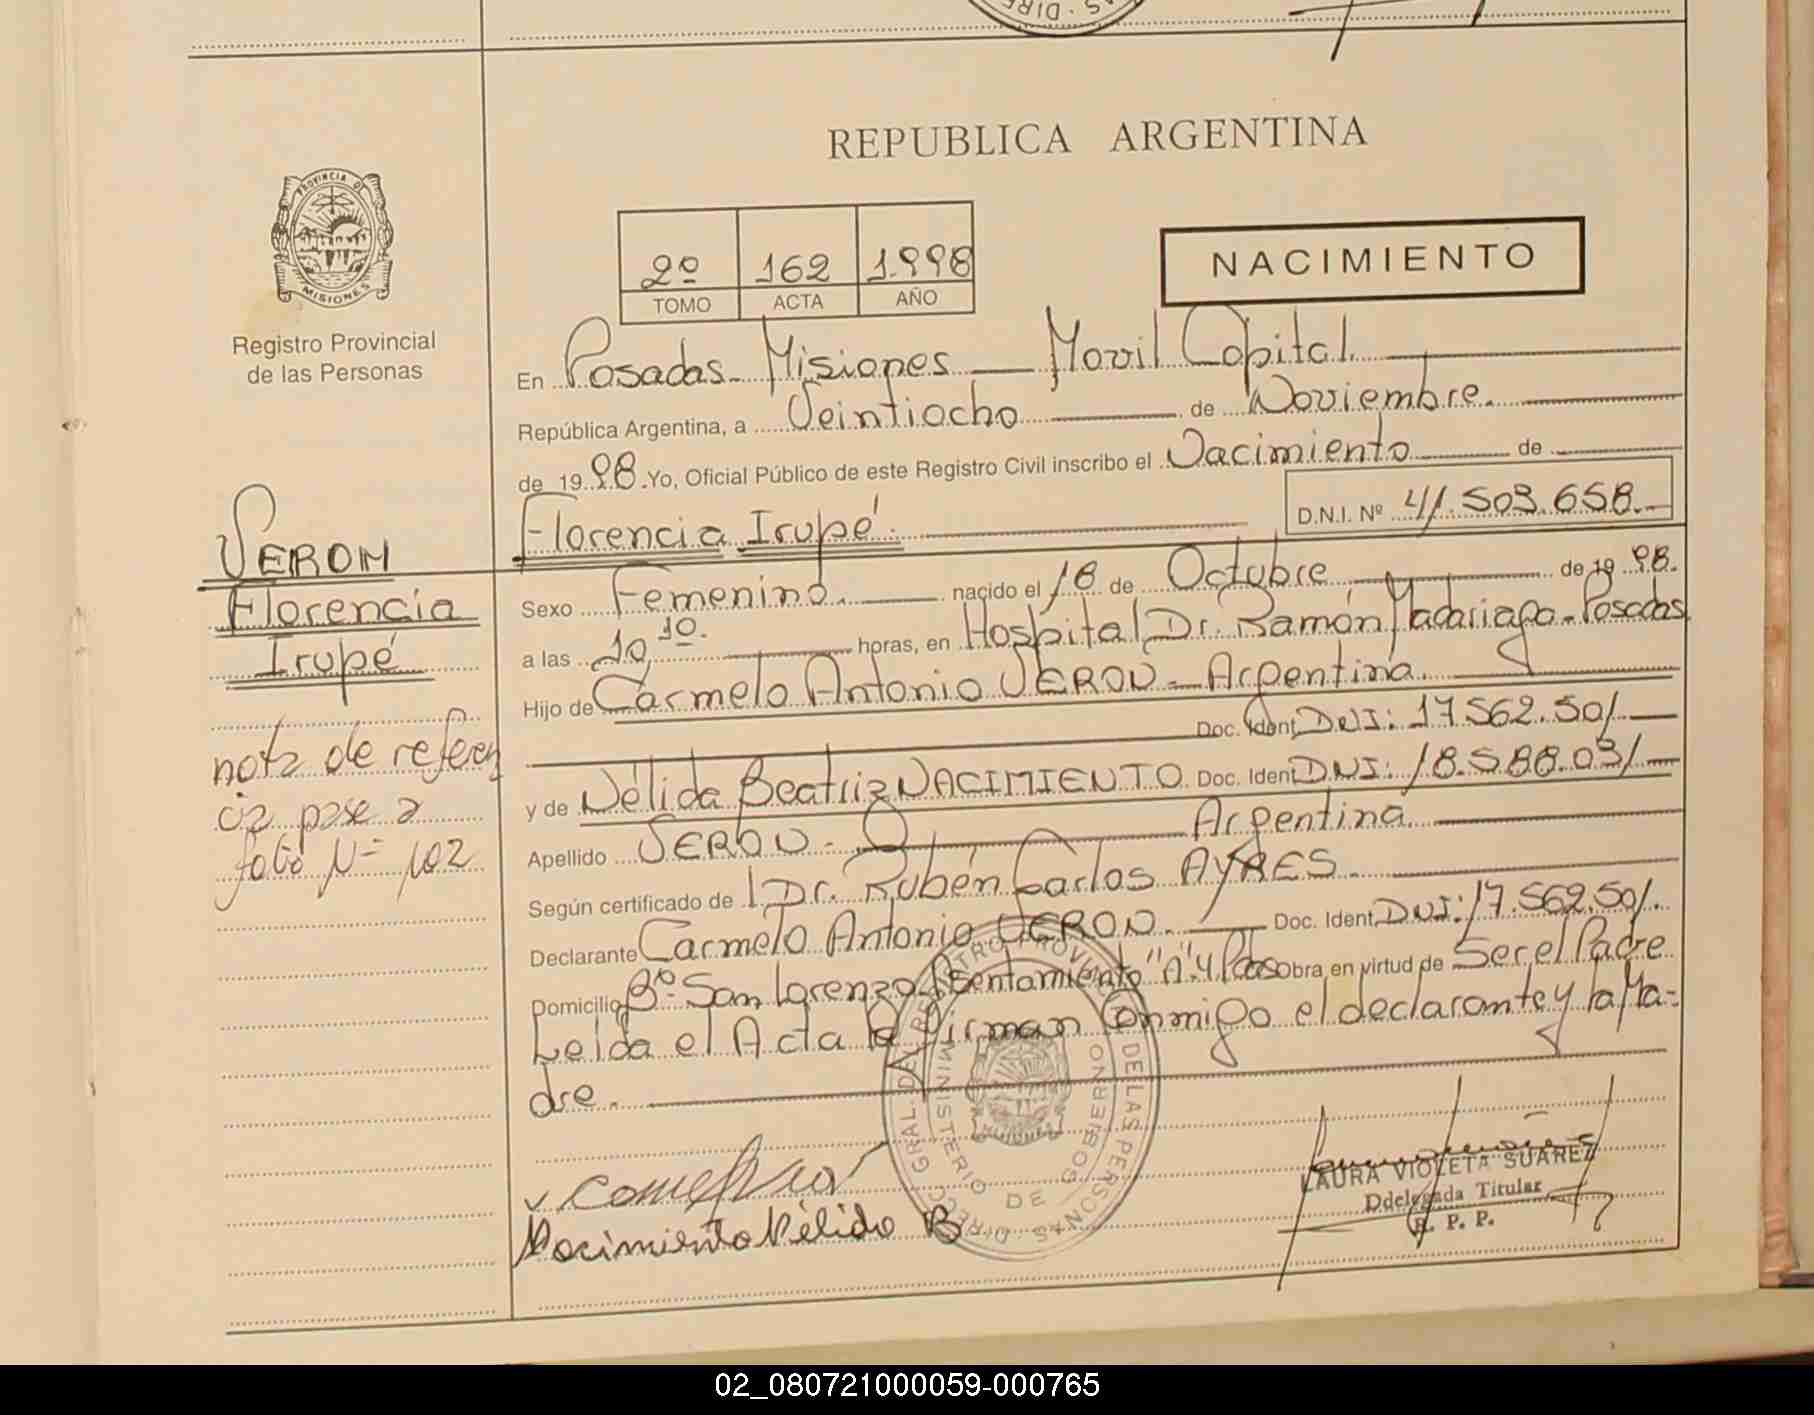 REPUBLICA ARGENTINA
PROVINCIA DE
MISIONES
Registro Provincial
de las Personas
2º 162 1.998
TOMO ACTA AÑO
NACIMIENTO
En Posadas - Misiones — Movil Capital.
República Argentina, a Veintiocho de Noviembre.
de 19 98 Yo, Oficial Público de este Registro Civil inscribo el Nacimiento de
Florencia Irupé. D.N.I. Nº 41.503.658.-
Sexo Femenino. nacido el 18 de Octubre de 19 98.
a las 10,10. horas, en Hospital Dr. Ramón Madariaga - Posadas
Hijo de Carmelo Antonio VERON - Argentina.
Doc. Ident. DNI: 17.562.501.
y de Nélida Beatriz NACIMIENTO Doc. Ident. DNI: 18.588.031
Apellido VERON - Argentina.
Según certificado de l Dr. Rubén Carlos AYRES.
Declarante Carmelo Antonio VERON. Doc. Ident. DNI: 17.562.501.
Domicilio Bº San Lorenzo Asentamiento "A" 4 Pdas Obra en virtud de Ser el Padre
Leida el Acta la Firman Conmigo el declarante y la Ma-
dre.
VERON
Florencia
Irupé
nota de referen
cia pase a
folio Nº 102
Nacimiento Nélida B
DIRECC. GRAL. DEL REGISTRO PROVINCIAL DE LAS PERSONAS
MINISTERIO DE GOBIERNO
LAURA VIOLETA SUAREZ
Ddelegada Titular
R. P. P.
02_080721000059-000765